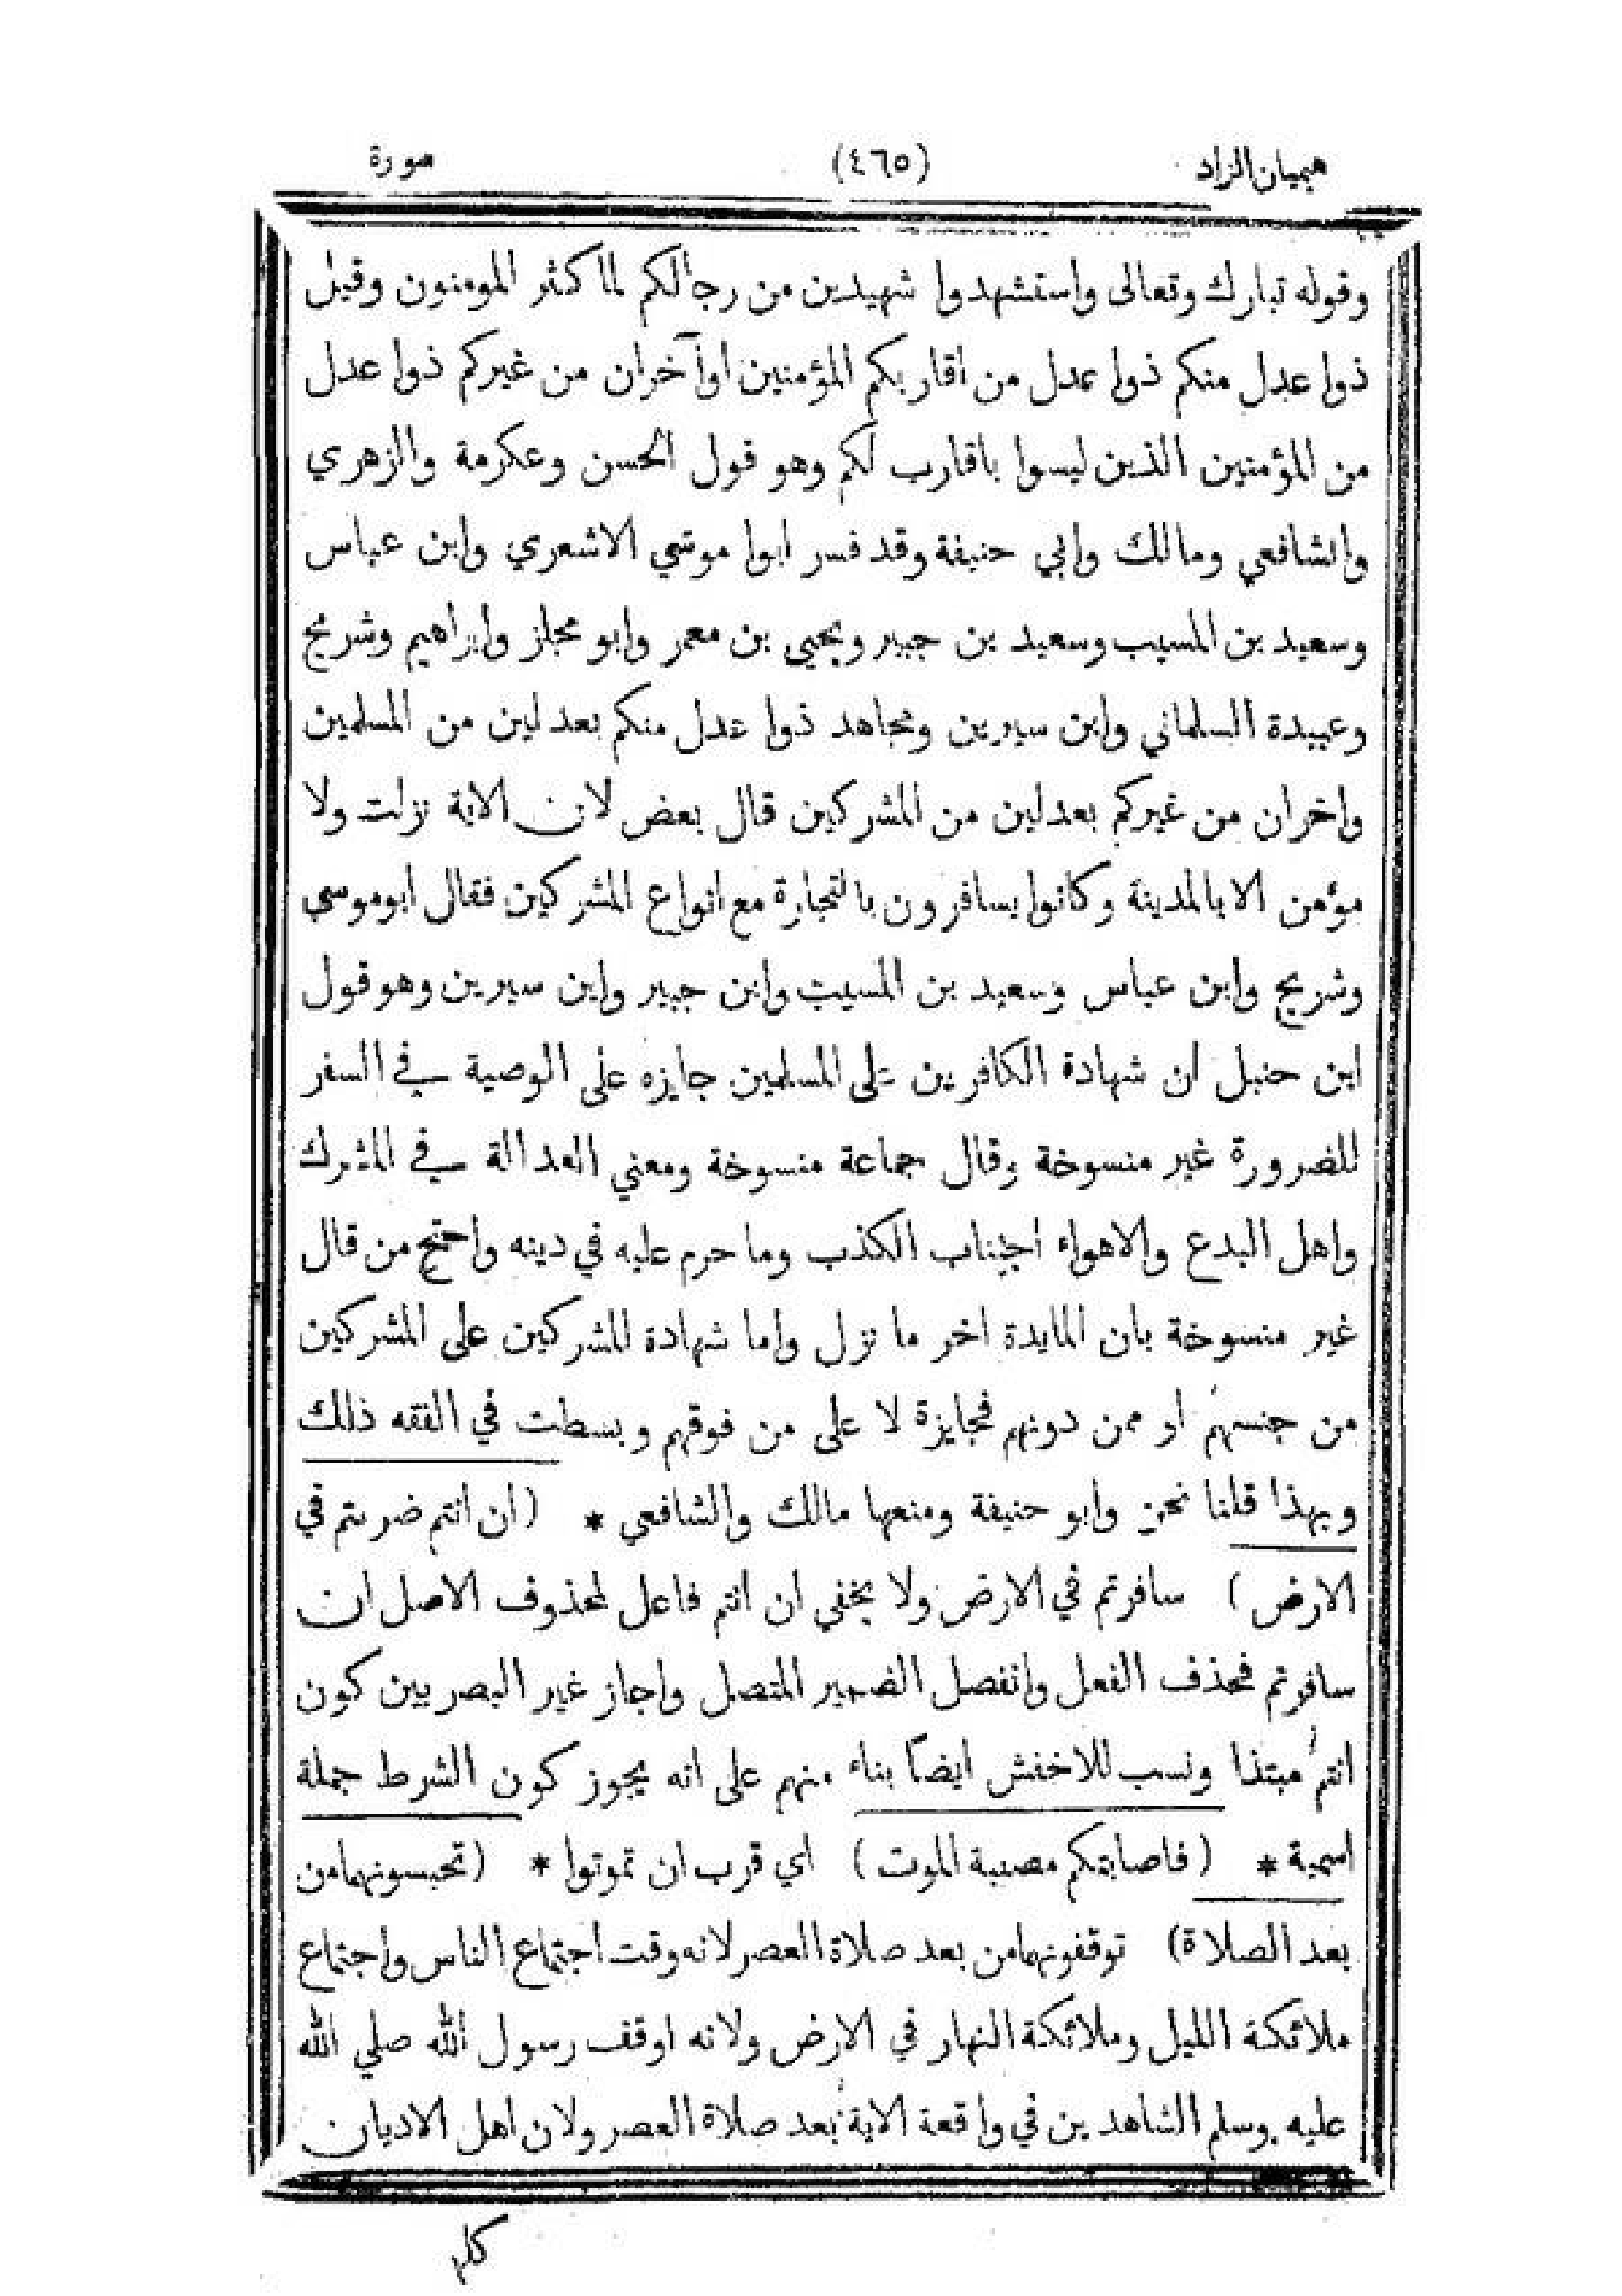 هميان الزاد (٤٦٥) سورة
وقوله تبارك وتعالى واستشهدوا شهيدين من رجالكم لما كثر المومنون وقيل
ذوا عدل منكم ذوا عدل من اقاربكم المؤمنين اوآخران من غيركم ذوا عدل
من المؤمنين الذين ليسوا باقارب لكم وهو قول الحسن وعكرمة والزهري
والشافعي ومالك وابي حنيفة وقد فسر ابوا موسي الاشعري وابن عباس
وسعيد بن المسيب وسعيد بن جبير ويحيي بن معمر وابو مجلز وابراهيم وشريح
وعبيدة السلماني وابن سيرين ومجاهد ذوا عدل منكم بعدلين من المسلمين
واخران من غيركم بعدلين من المشركين قال بعض لان الاية نزلت ولا
مؤمن الا بالمدينة وكانوا يسافرون بالتجارة مع انواع المشركين فقال ابوموسي
وشريح وابن عباس وسعيد بن المسيب وابن جبير وابن سيرين وهو قول
ابن حنبل ان شهادة الكافرين على المسلمين جايزه على الوصية في السفر
للضرورة غير منسوخة وقال جماعة منسوخة ومعني العدالة في المشرك
واهل البدع والاهواء اجتناب الكذب وما حرم عليه في دينه واحتج من قال
غير منسوخة بان المايدة اخر ما نزل واما شهادة المشركين على المشركين
من جنسهم او ممن دونهم فجايزة لا على من فوقهم وبسطت في الفقه ذلك
وبهذا قلنا نحن وابو حنيفة ومنعها مالك والشافعي * (ان انتم ضربتم في
الارض) سافرتم في الارض ولا يخفي ان انتم فاعل لمحذوف الاصل ان
سافرتم فحذف الفعل وانفصل الضمير المتصل واجاز غير البصريين كون
انتم مبتدا ونسب للاخفش ايضا بناء منهم على انه يجوز كون الشرط جملة
اسمية * (فاصابتكم مصيبة الموت) اي قرب ان تموتوا * (تحبسونهما من
بعد الصلاة) توقفونهما من بعد صلاة العصر لانه وقت اجتماع الناس واجتماع
ملائكة الليل وملائكة النهار في الارض ولانه اوقف رسول الله صلي الله
عليه وسلم الشاهدين في واقعة الاية بعد صلاة العصر ولان اهل الاديان
كلهم